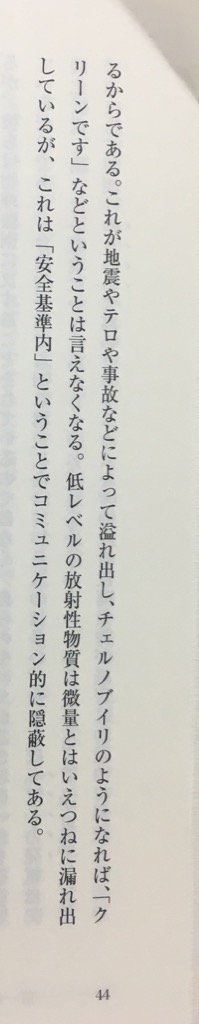 るからである。これが地震やテロや事故などによって溢れ出し、チェルノブイリのようになれば、「ク
リーンです」などということは言えなくなる。低レベルの放射性物質は微量とはいえつねに漏れ出
しているが、これは「安全基準内」ということでコミュニケーション的に隠蔽してある。
44